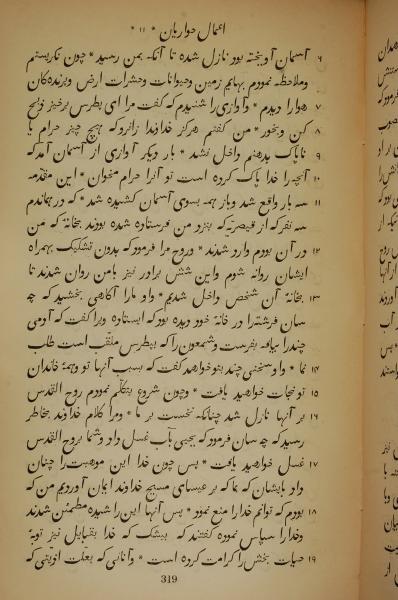 اعمال حواریان * ۱۱ *
۶ آسمان آویخته بود نازل شده تا آنکه بمن رسید * چون نگریستم
وملاحظه نمودم بهایم زمین وحیوانات وحشرات ارض وپرنده‌کان
۷ هوارا دیدم * وآوازی را شنیدم که گفت مرا ای بطرس برخیز ذبح
۸ کن وبخور * من گفتم هرگز خداوندا زانرو که هیچ چیز حرام یا
۹ ناپاک بدهنم داخل نشد * بار دیگر آوازی از آسمان آمد که
۱۰ آنچه را خدا پاک کرده است تو آنرا حرام مخوان * این مقدمه
۱۱ سه بار واقع شد وباز همه بسوی آسمان کشیده شد * که در هماندم
سه نفر که از قیصریه بنزد من فرستاده شده بودند بخانهٔ که من
۱۲ در آن بودم وارد شدند * وروح مرا فرمود که بدون تشکیک بهمراه
ایشان روانه شوم واین شش برادر نیز بامن روان شدند تا
۱۳ بخانهٔ آن شخص داخل شدیم * واو مارا آکاهی بخشید که چه
سان فرشته‌را در خانهٔ خود دیده بود که ایستاده ویرا گفت که آدمی
چندرا بیافه بفرست وشمعون را که بپطرس ملقب است طلب
۱۴ نما * واو سخنی چند بتو خواهد گفت که بسبب آنها تو وهمهٔ خاندان
۱۵ تو نجات خواهید یافت * وچون شروع بتکلّم نمودم روح القدس
۱۶ بر آنها نازل شد چنانکه نخست بر ما * ومرا کلام خداوند بخاطر
رسید که چه سان فرمود که یحیی بآب غسل داد وشما بروح القدس
۱۷ غسل خواهید یافت * پس چون خدا این موهبت را چنان
داد بایشان که بما که بر عیسای مسیح خداوند ایمان آوردیم من که
۱۸ بودم که توانم خدارا منع نمود * پس آنها این را شنیده مطمئن شدند
وخدارا سپاس نموده گفتند که بیشک که خدا بقبایل نیز توبهٔ
۱۹ حیات بخش را کرامت کرده است * وآنانی که بعلت اذیتی که
319